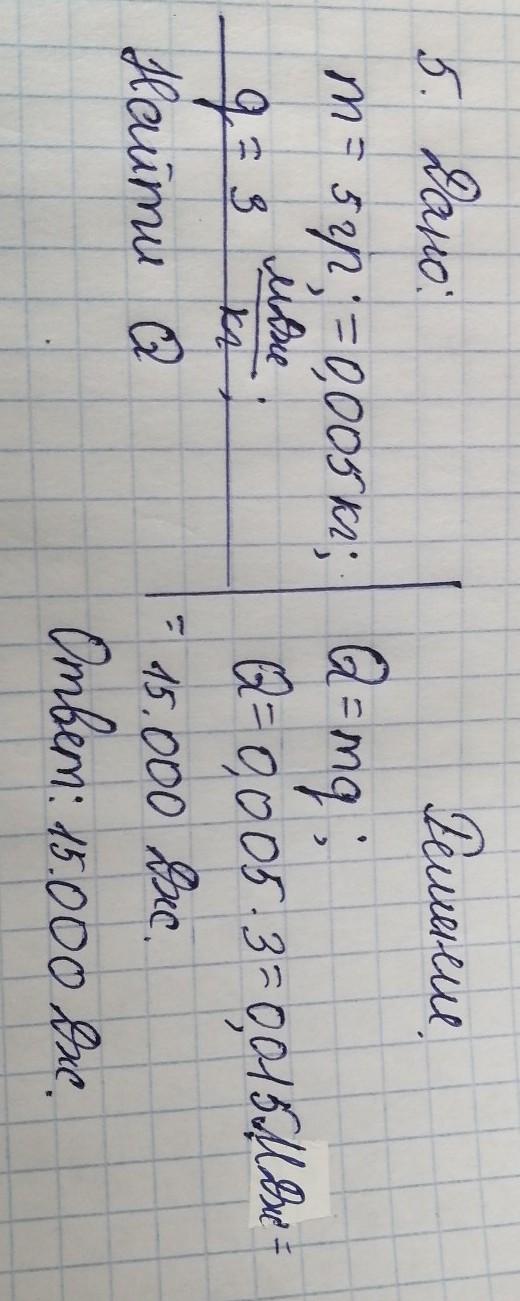 5. Дано:
m = 5 гр; = 0,005 кг;
q = 3 МДж/кг;
Найти Q
Решение.
Q = mq;
Q = 0,005 · 3 = 0,015 МДж =
= 15.000 Дж.
Ответ: 15.000 Дж.